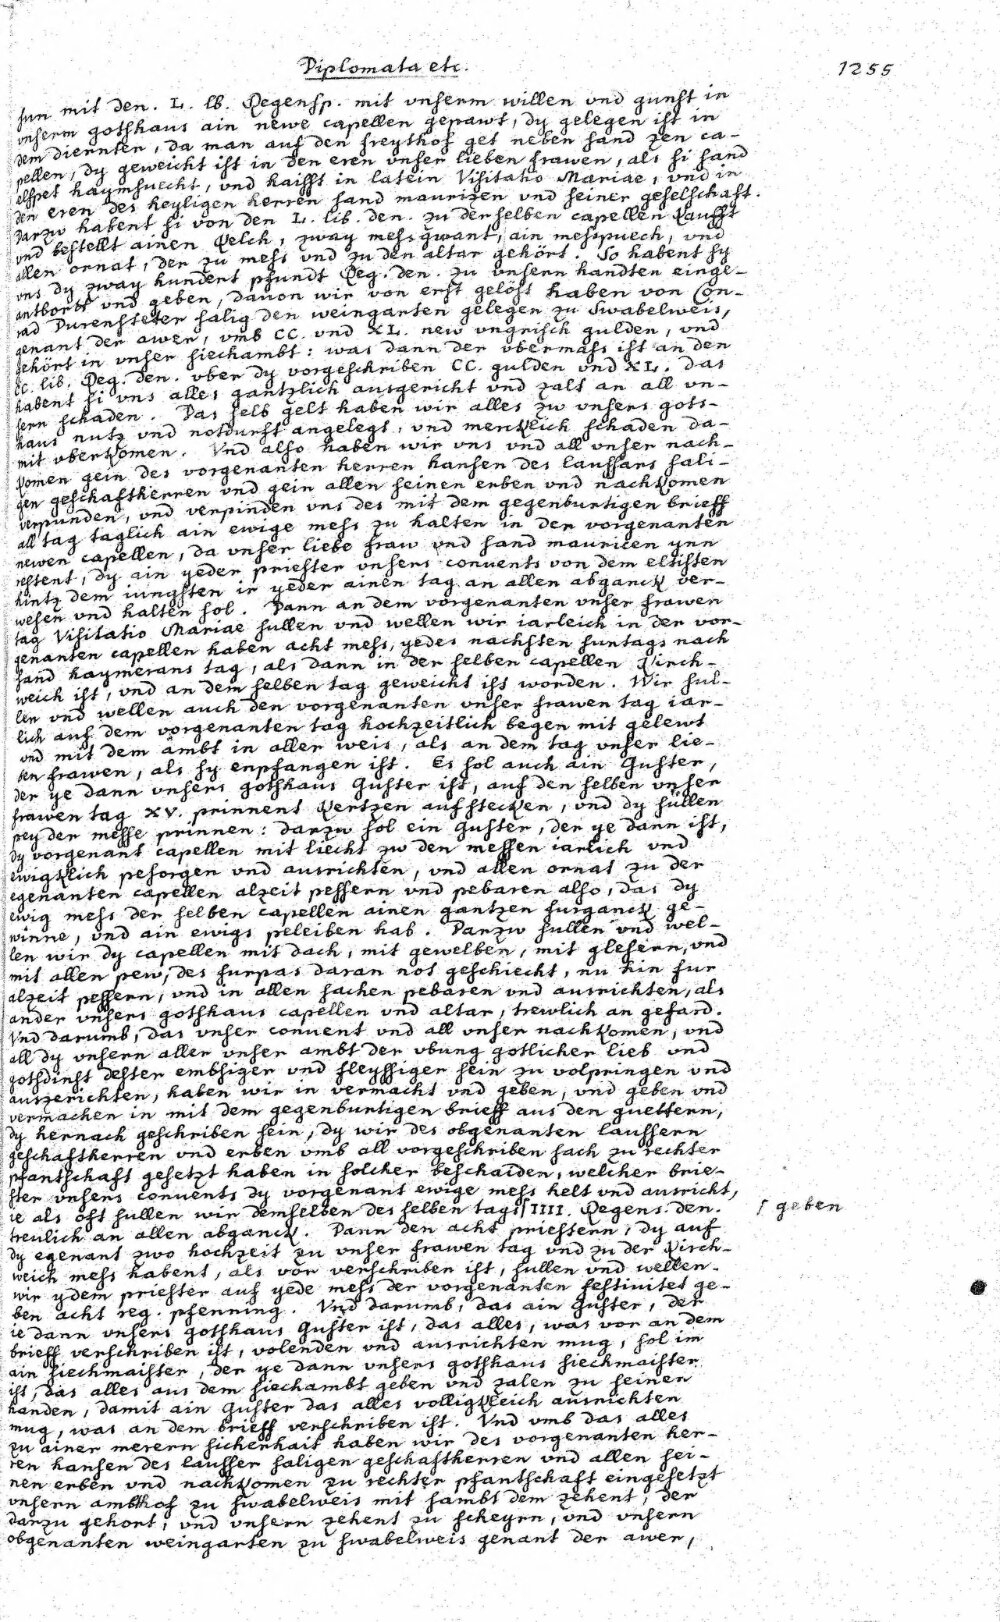 Diplomata etc. 1255
sun mit den . L . lb . Regensp . mit vnserm willen vnd gunst in
vnserm gotshaus ain newe capellen gepawt , dy gelegen ist in
dem diennter , da man auf den freythof get neben sand zen ca-
pellen , dy geweicht ist in den eren vnser lieben frawen , als si sand
elspet haymsuecht , vnd haisst in latein Visitatio Mariae , vnd in
den eren des heyligen herren sand mauritzen vnd seiner geselschaft .
Darzw habent si von den L . lib . den . zu derselben capellen kaufft
vnd bestellt ainen kelch , zway messgwant , ain messpuech , vnd
allen ornat , der zu mess vnd zu den altar gehört . So habent sy
vns dy zway hundert pfundt Reg . den . zu vnsern handten einge-
antbort vnd geben , dauon wir von erst gelöst haben von Con-
rad Durensteter salig den weingarten gelegen zu Swabelweis ,
genant der awer , vmb CC . vnd XL . new vngrisch gulden , vnd
gehört in vnser siechambt : was dann der vbermass ist an den
CC . lib . Reg . den . vber dy vorgeschriben CC . gulden vnd XL . das
habent si vns alles gantzlich ausgericht vnd zalt an all vn-
sern schaden . Das selb gelt haben wir alles zw vnsers gots-
haus nutz vnd notdurft angelegt , vnd merkleich schaden da-
mit vberkomen . Vnd also haben wir vns vnd all vnser nach-
komen gein des vorgenanten herren hansen des laussars sali-
gen geschaftherren vnd gein allen seinen erben vnd nachkomen
verpunden , vnd verpinden vns des mit dem gegenburtigen brieff
all tag taglich ain ewige mess zu halten in der vorgenanten
newen capellen , da vnser liebe fraw vnd sand mauricen ynn
restent , dy ain yeder priester vnsers conuents von dem eltisten
hintz dem iungsten ir yeder ainen tag an allen abganck ver-
wesen vnd halten sol . Dann an dem vorgenanten vnser frawen
tag Visitatio Mariae sullen vnd wellen wir iarleich in der vor-
genanten capellen haben acht mess , yedes nachsten suntags nach
sand haymerans tag , als dann in der selben capellen kirch-
weich ist , vnd an dem selben tag geweicht ist worden . Wir sul-
len vnd wellen auch den vorgenanten vnser frawen tag iar-
lich auf dem vorgenanten tag hochzeitlich begen mit gelewt
vnd mit dem ambt in aller weis , als an dem tag vnser lie-
ben frawen , als sy enpfangen ist . Es sol auch ain Guster ,
der ye dann vnsers gotshaus Guster ist , auf den selben vnser
frawen tag XV . prinnent kertzen aufstecken , vnd dy süllen
pey der messe prinnen : darzw sol ein Guster , der ye dann ist ,
dy vorgenant capellen mit liecht zw den messen iarlich vnd
ewigklich pesorgen vnd ausrichten , vnd allen ornat zu der
egenanten capellen alzeit pessern vnd pebaren also , das dy
ewig mess der selben capellen ainen gantzen furganck ge-
winne , vnd ain ewigs peleiben hab . Darzw sullen vnd wel-
len wir dy capellen mit dach , mit gewelben , mit glesern , vnd
mit allen pew , des furpas daran not geschiecht , nu hin fur
alzeit pessern , vnd in allen sachen pebaren vnd ausrichten , als
ander vnsers gotshaus capellen vnd altar , trewlich an gefard .
Vnd darumb , das vnser conuent vnd all vnser nachkomen , vnd
all dy vnsern aller vnser ambt der vbung gotlicher lieb vnd
gotsdinst dester embsiger vnd fleyssiger sein zu volpringen vnd
auszerichten , haben wir in vermacht vnd geben , vnd geben vnd
vermachen in mit dem gegenburtigen brieff aus den guettern ,
dy hernach geschriben sein , dy wir des obgenanten laussern
geschaftherren vnd erben vmb all vorgeschriben sach zu rechter
pfantschaft gesetzt haben in solcher beschaiden , welcher brie-
ster vnsers conuents dy vorgenant ewige mess helt vnd ausricht ,
ie als oft sullen wir demselben des selben tags ∫ IIII . Regens . den . ∫ geben
treulich an allen abganck . Dann den acht priestern , dy auf
dy egenant zwo hochzeit zu vnser frawen tag vnd zu der kirch-
weich mess habent , als vor verschriben ist , sullen vnd wellen
wir ydem priester auf yede mess der vorgenanten festiuitet ge-
ben acht reg . pfenning . Vnd darumb , das ain Guster , der
ie dann vnsers gotshaus Guster ist , das alles , was vor an dem
brieff verschriben ist , volenden vnd ausrichten mug , sol im
ain siechmaister , der ye dann vnsers gotshaus siechmaister
ist , das alles aus dem siechambt geben vnd zalen zu seinen
handen , damit ain Guster das alles volligkleich ausrichten
mug , was an dem brieff verschriben ist . Vnd vmb das alles
zu ainer merern sicherhait haben wir des vorgenanten her-
ren hansen des lausser saligen geschaftherren vnd allen sei-
nen erben vnd nachkomen zu rechter pfantschaft eingesetzt
vnsern ambthof zu swabelweis mit sambt dem zehent , der
darzu gehort , vnd vnsern zehent zu scheyrn , vnd vnsern
obgenanten weingarten zu swabelweis genant der awer ,